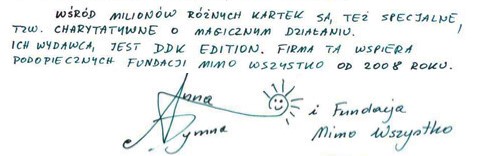 WŚRÓD MILIONÓW RÓŻNYCH KARTEK SĄ, TEŻ SPECJALNE,
TZW. CHARYTATYWNE O MAGICZNYM DZIAŁANIU.
ICH WYDAWCĄ, JEST DDK EDITION. FIRMA TA WSPIERA
PODOPIECZNYCH FUNDACJI MIMO WSZYSTKO OD 2008 ROKU.
Anna
Dymna
i Fundacja
Mimo Wszystko